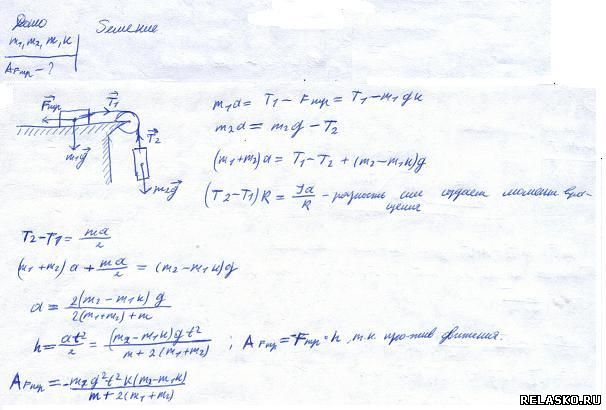 Дано
Решение
m₁, m₂, m, к
Aтр - ?
Fтр T₁
T₂
m₁g
m₂g
m₁a = T₁ - Fтр = T₁ - m₁gк
m₂a = m₂g - T₂
(m₁+m₂)a = T₁ - T₂ + (m₂ - m₁к)g
(T₂-T₁)R = Ja/R - разность сил создает момент вра-
щения
T₂-T₁ = ma/2
(m₁+m₂)a + ma/2 = (m₂-m₁к)g
a = 2(m₂-m₁к)g / 2(m₁+m₂)+m
h = at²/2 = (m₂-m₁к)gt² / m+2(m₁+m₂) ; AFтр = -Fтр·h, т.к. против движения.
AFтр = -m₁g²t²к(m₂-m₁к) / m+2(m₁+m₂)
RELASKO.RU